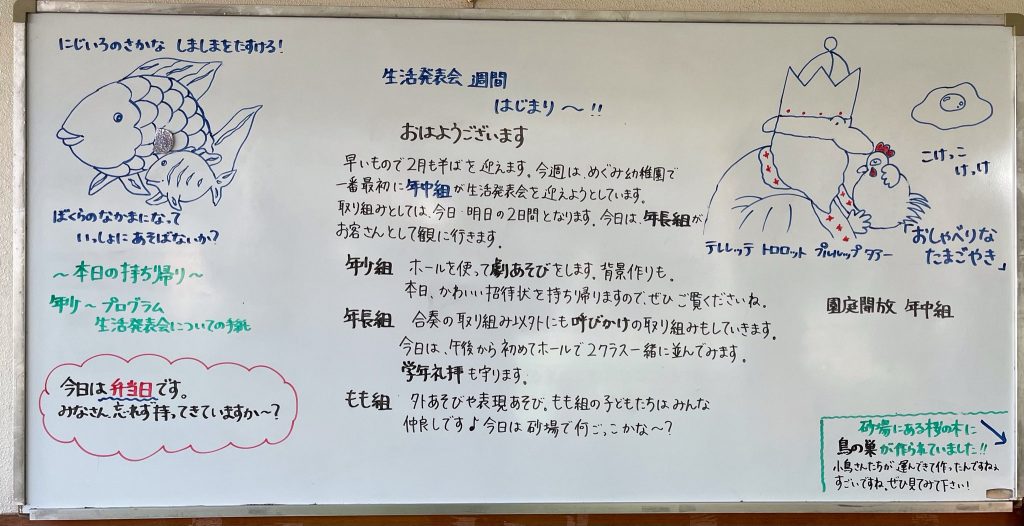 にじいろのさかな しましまをたすけろ!
ぼくらのなかまになって
いっしょに あそばないか?
〜本日の持ち帰り〜
年少〜プログラム
生活発表会についての手紙
今日は弁当日です。
みなさん、忘れず持ってきていますか〜?
生活発表会 週間
はじまり〜!!
おはようございます
早いもので2月も半ばを迎えます。今週は、めぐみ幼稚園で
一番最初に年中組が生活発表会を迎えようとしています。
取り組みとしては、今日・明日の2日間となります。今日は、年長組が
お客さんとして観に行きます。
年少組 ホールを使って劇あそびをします。背景作りも。
本日、かわいい招待状を持ち帰りますので、ぜひご覧くださいね。
年長組 合奏の取り組み以外にも呼びかけの取り組みもしていきます。
今日は、午後から初めてホールで2クラス一緒に並んでみます。
学年礼拝も守ります。
もも組 外あそびや表現あそび。もも組の子どもたちはみんな
仲良しです♪今日は砂場で何ごっこかな〜?
こけっこ
けっけ
テレレッテ トロロット プルルップ タター
「おしゃべりな
たまごやき」
園庭開放 年中組
砂場にある桜の木に
鳥の巣が作られていました!!
小鳥さんたちが運んできて作ったんですねぇ
すごいですね。ぜひ見てみて下さい!